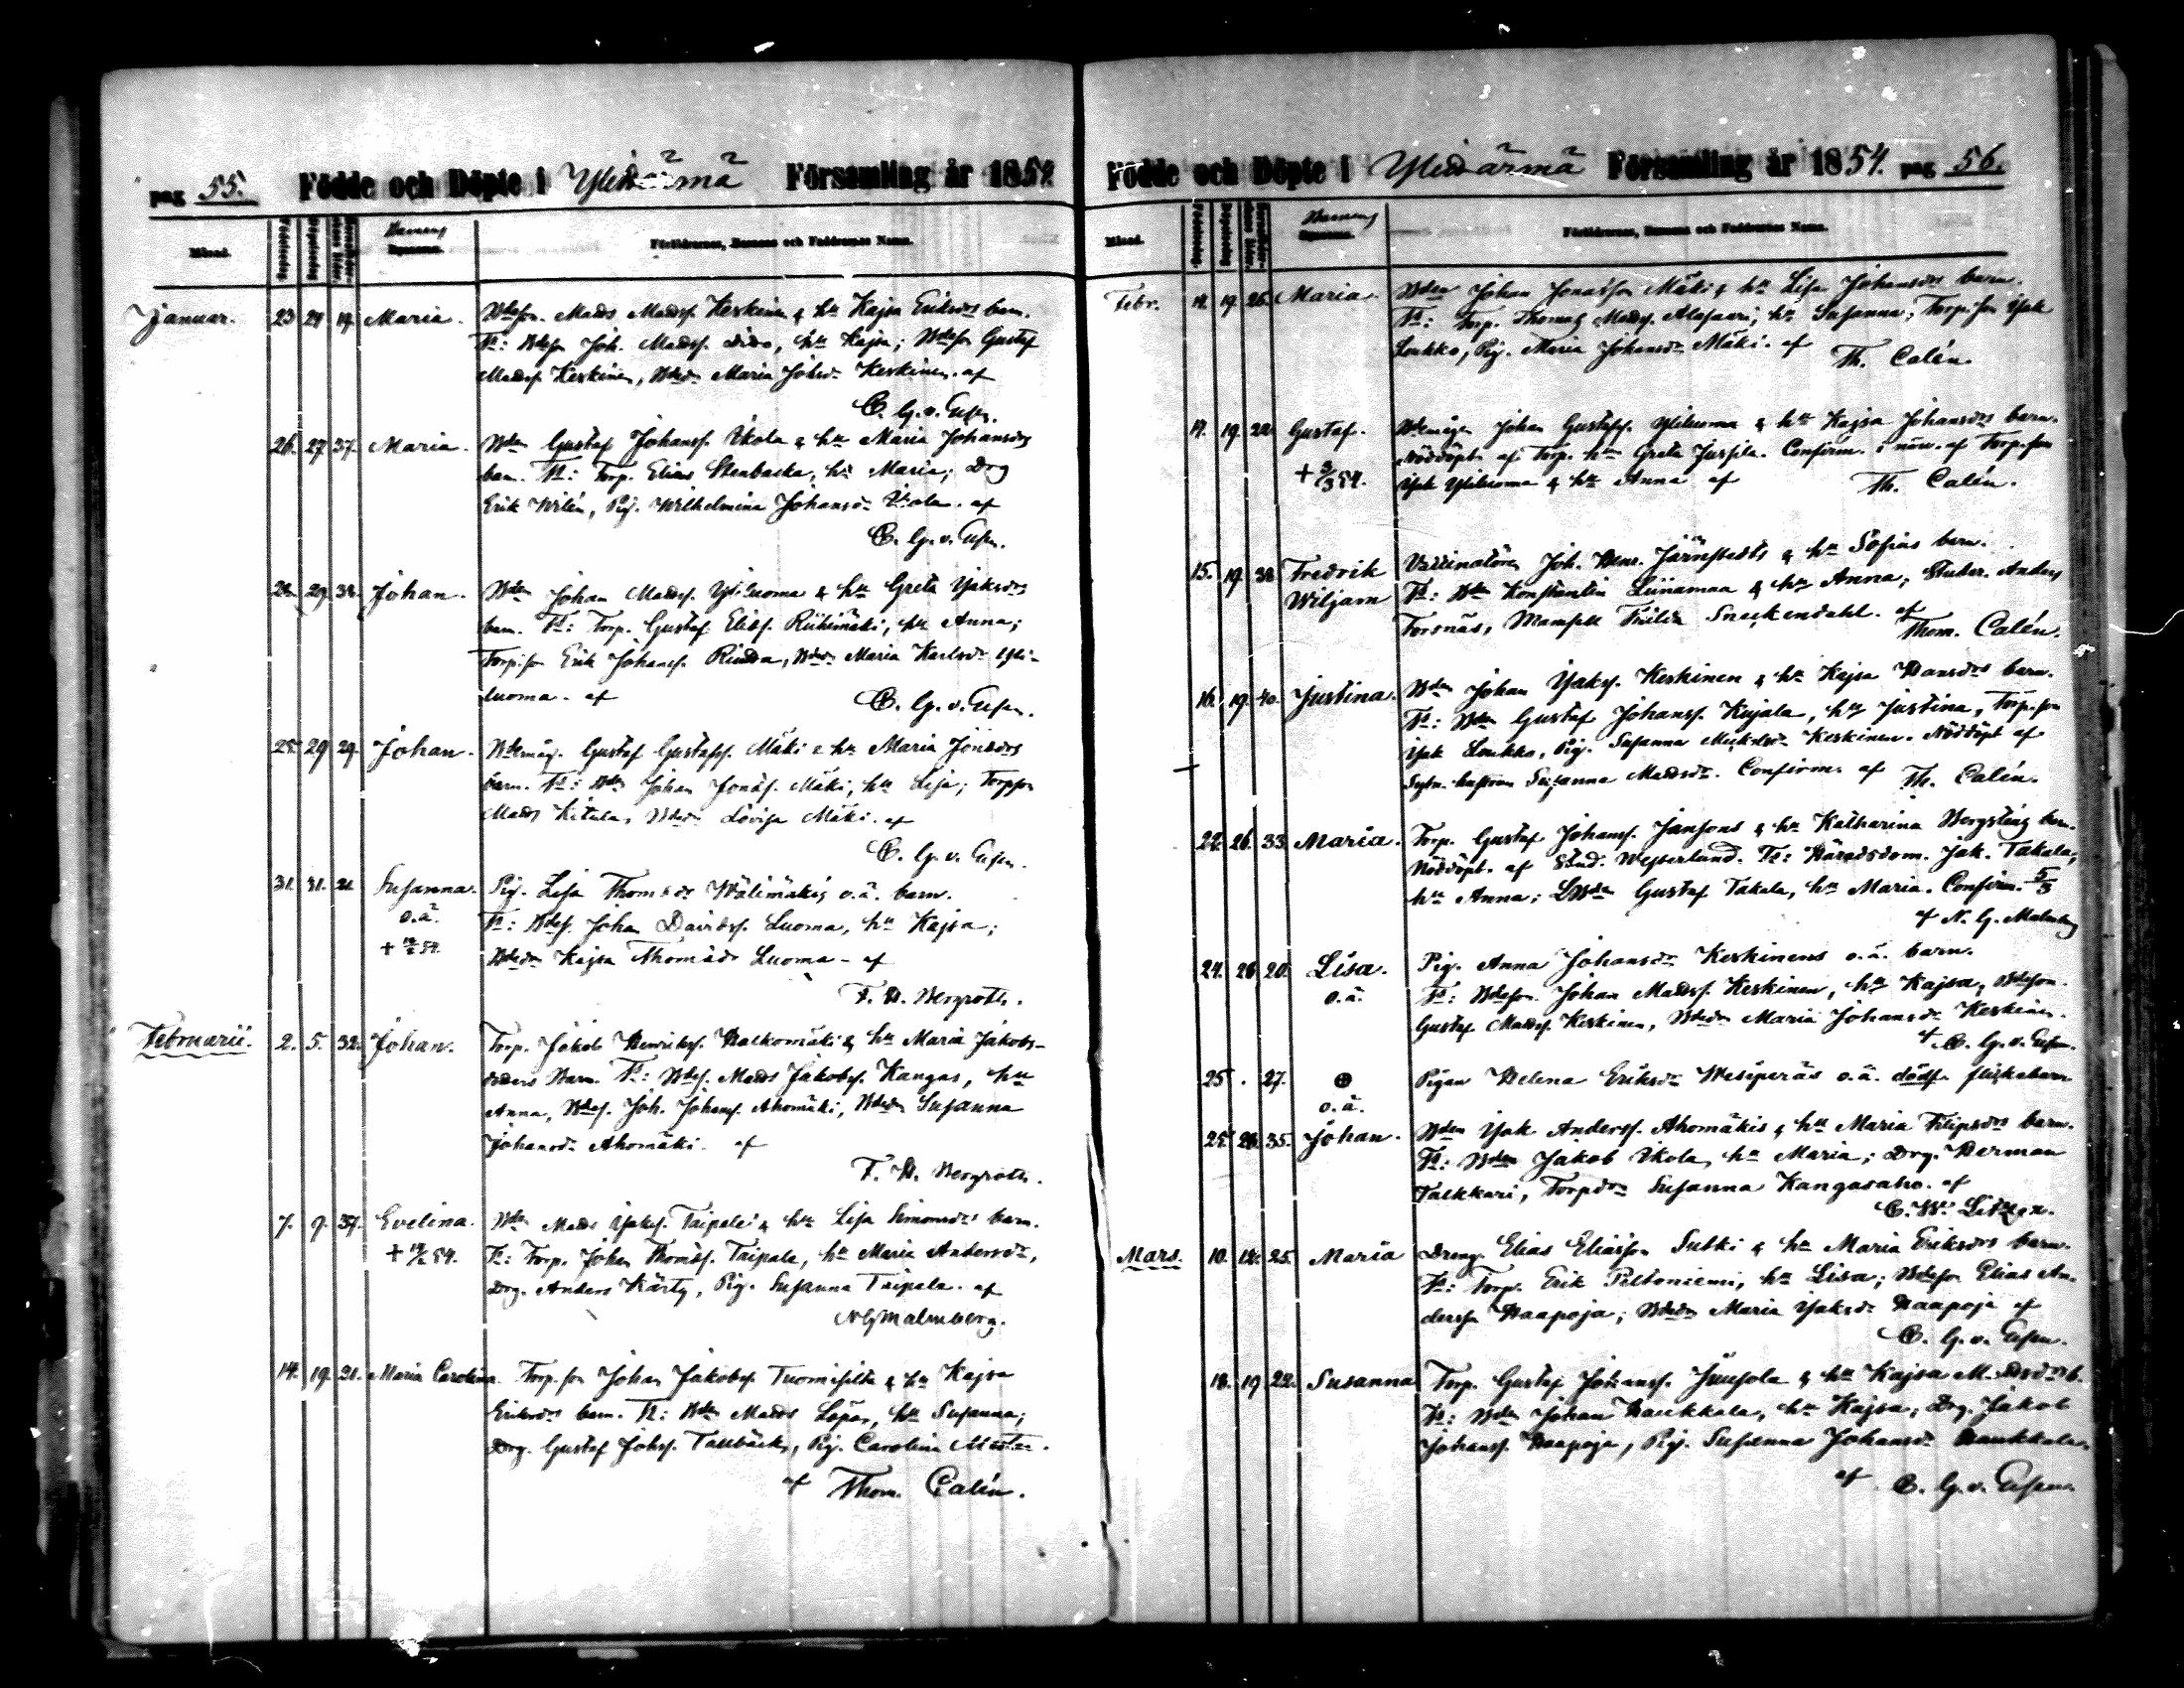 pag 55. Födde och Döpte i Ylihärmä Församling år 1854.
Månad. Födelsedag Döpelsedag Barnens Föräldrarnes, Barnens och Faddrarnes Namn.
Januar. 23 29 19. Maria. Bdeson. Mads Madsf. Keskinen & hu Kajsa Eriksdrs barn.
Fr: Bdeson Joh. Madsf. dito, hu Kajsa; Bdeson Gustaf
Madsf. Keskinen, Bdedr Maria Johsdr Keskinen. af
C. G. v. Essen.
26. 27 37. Maria. Bdn Gustaf Johansf. Ekola & hu Maria Johansdrs
barn. Fr: Torp. Elias Stenbacka, hu Maria; Drg
Erik Wilén, Pig. Wilhelmina Johansdr Ekola. af
C. G. v. Essen.
28. 29. 32. Johan. Bdn Johan Madsf. Yliluoma & hu Greta Isaksdrs
barn. Fr: Torp. Gustaf Eliesf. Riihimäki, hu Anna;
Torp.son Erik Johansf. Rinda, Bdedr Maria Karlsdr Yli-
luoma. af C. G. v. Essen.
25. 29 29. Johan. Bdemåg. Gustaf Gustafsf. Mäki & hu Maria Jonsdrs
barn. Fr: Bdn Johan Jonasf. Mäki, hu Lisa; Torpson
Mads Kitula, Bdedr Lovisa Mäki. af
C. G. v. Essen.
31. 31. 21 Susanna. Pig. Lisa Thomsdr Wälimäkis o.ä. barn.
o.ä. Fr: Bdes. Johan Davidsf. Luoma, hu Kajsa;
Bdedr Kajsa Thomasdr Luoma - af
F. H. Bergroth.
Februarii. 2. 5. 32. Johan. Torp. Jakob Henriksf. Kalkomäki & hu Maria Jakobs-
doters Barn. Fr: Bdes. Mads Jakobsf. Kangas, hu
Anna, Bdes. Joh. Johansf. Ahomäki, Bdedr Susanna
Johansdr Ahomäki. af
F. H. Bergroth.
7. 9. 37. Evelina. Bdn Mads Isaksf. Taipale & hu Lisa Simonsdrs barn.
54. Fr: Torp. Johan Thomasf. Taipale, hu Maria Andersdr,
Drg. Anders Kärty, Pig. Susanna Taipale. af
N G Malmberg.
14. 19. 21. Maria Carolina. Torp.son Johan Jakobsf. Tuomisilta & hu Kajsa
Eriksdrs barn. Fr: Bdn Mads Lopas, hu Susanna;
Drg. Gustaf Johsf. Tallbacka, Pig. Carolina
af Thom. Calén.
Födde och Döpte i Ylihärmä Församling år 1854. pag 56.
Månad. Födelsedag Döpelsedag Barnens Föräldrarnes, Barnens och Faddrarnes Namn.
Febr. 19. 25. Maria. Bdn Johan Jonasson Mäki & hu Lisa Johansdrs barn.
Fr: Torp. Thomas Madsf. Alasaari, hu Susanna; Torp.son Isak
Loukko, Pig. Maria Johansdr Mäki. af Th. Calén.
17. 19. 22. Gustaf. Bdemågen Johan Gustafsf. Yliluoma & hu Kajsa Johansdrs barn.
Nöddöpt. af Torp. hu Greta Jussila. Confirm. i närv. af Torp.son
+ 3/3 54. Isak Yliluoma & hu Anna af Th. Calén.
15. 19. 32. Fredrik Vaccinatören Joh. Henr. Järnstedts & hu Sofias barn.
Wiljam Fr: Bdn Konstantin Liinamaa & hu Anna; Stuber. Anders
Forsnäs, Mamsell Thilda Sneckendahl. af Thom. Calén.
16. 19. 40. Justina. Bdn Johan Isaksf. Keskinen & hu Kajsa Hansdrs barn.
Fr: Bdn Gustaf Johansf. Kujala, hu Justina, Torp.son
Isak Loukko, Pig. Susanna Mickelsdr Keskinen. Nöddöpt af
Sytn. hustrun Susanna Madsdr. Confirm. af Th. Calén.
22. 26. 33. Maria. Torp. Gustaf Johansf. Jansons & hu Katharina Bergsteg barn.
Nöddöpt. af Stud. Westerlund. Fr: Häradsdom. Jak. Takala,
hu Anna; LBdn Gustaf Takala, hu Maria. Confirm. 5/3
af N. G. Malmberg
24. 26. 20. Lisa. Pig. Anna Johansdr Keskinens o.ä. barn.
o.ä. Fr: Bdeson Johan Madsf. Keskinen, hu Kajsa, Bdeson.
Gustaf Madsf. Keskinen, Bdedr Maria Johansdr Keskinen.
af C. G. v. Essen.
25. 27. ⊕ Pigan Helena Eriksdr Wesiperäs o.ä. dödf. flickebarn
o.ä.
25. 26. 35. Johan. Bdn Isak Andersf. Ahomäkis & hu Maria Filipsdrs barn.
Fr: Bdn Jakob Ekola, hu Maria; Drg. Herman
Talkkari, Torpdr Susanna Kangasaho. af
C. W. Litzen.
Mars. 10. 12. 25. Maria Dreng Elias Eliasson Sulki & hu Maria Eriksdrs barn.
Fr: Torp. Erik Peltoniemi, hu Lisa; Bdeson Elias An-
dersson Haapoja; Bdedr Maria Isaksdr Haapoja af
C. G. v. Essen.
18. 19 22. Susanna Torp. Gustaf Johansf. Juusola & hu Kajsa Madsdrs b.
Fr: Bdn Johan Haukkala, hu Kajsa; Drg. Jakob
Johansf. Haapoja, Pig. Susanna Johansdr Haukkala.
af C. G. v. Essen.